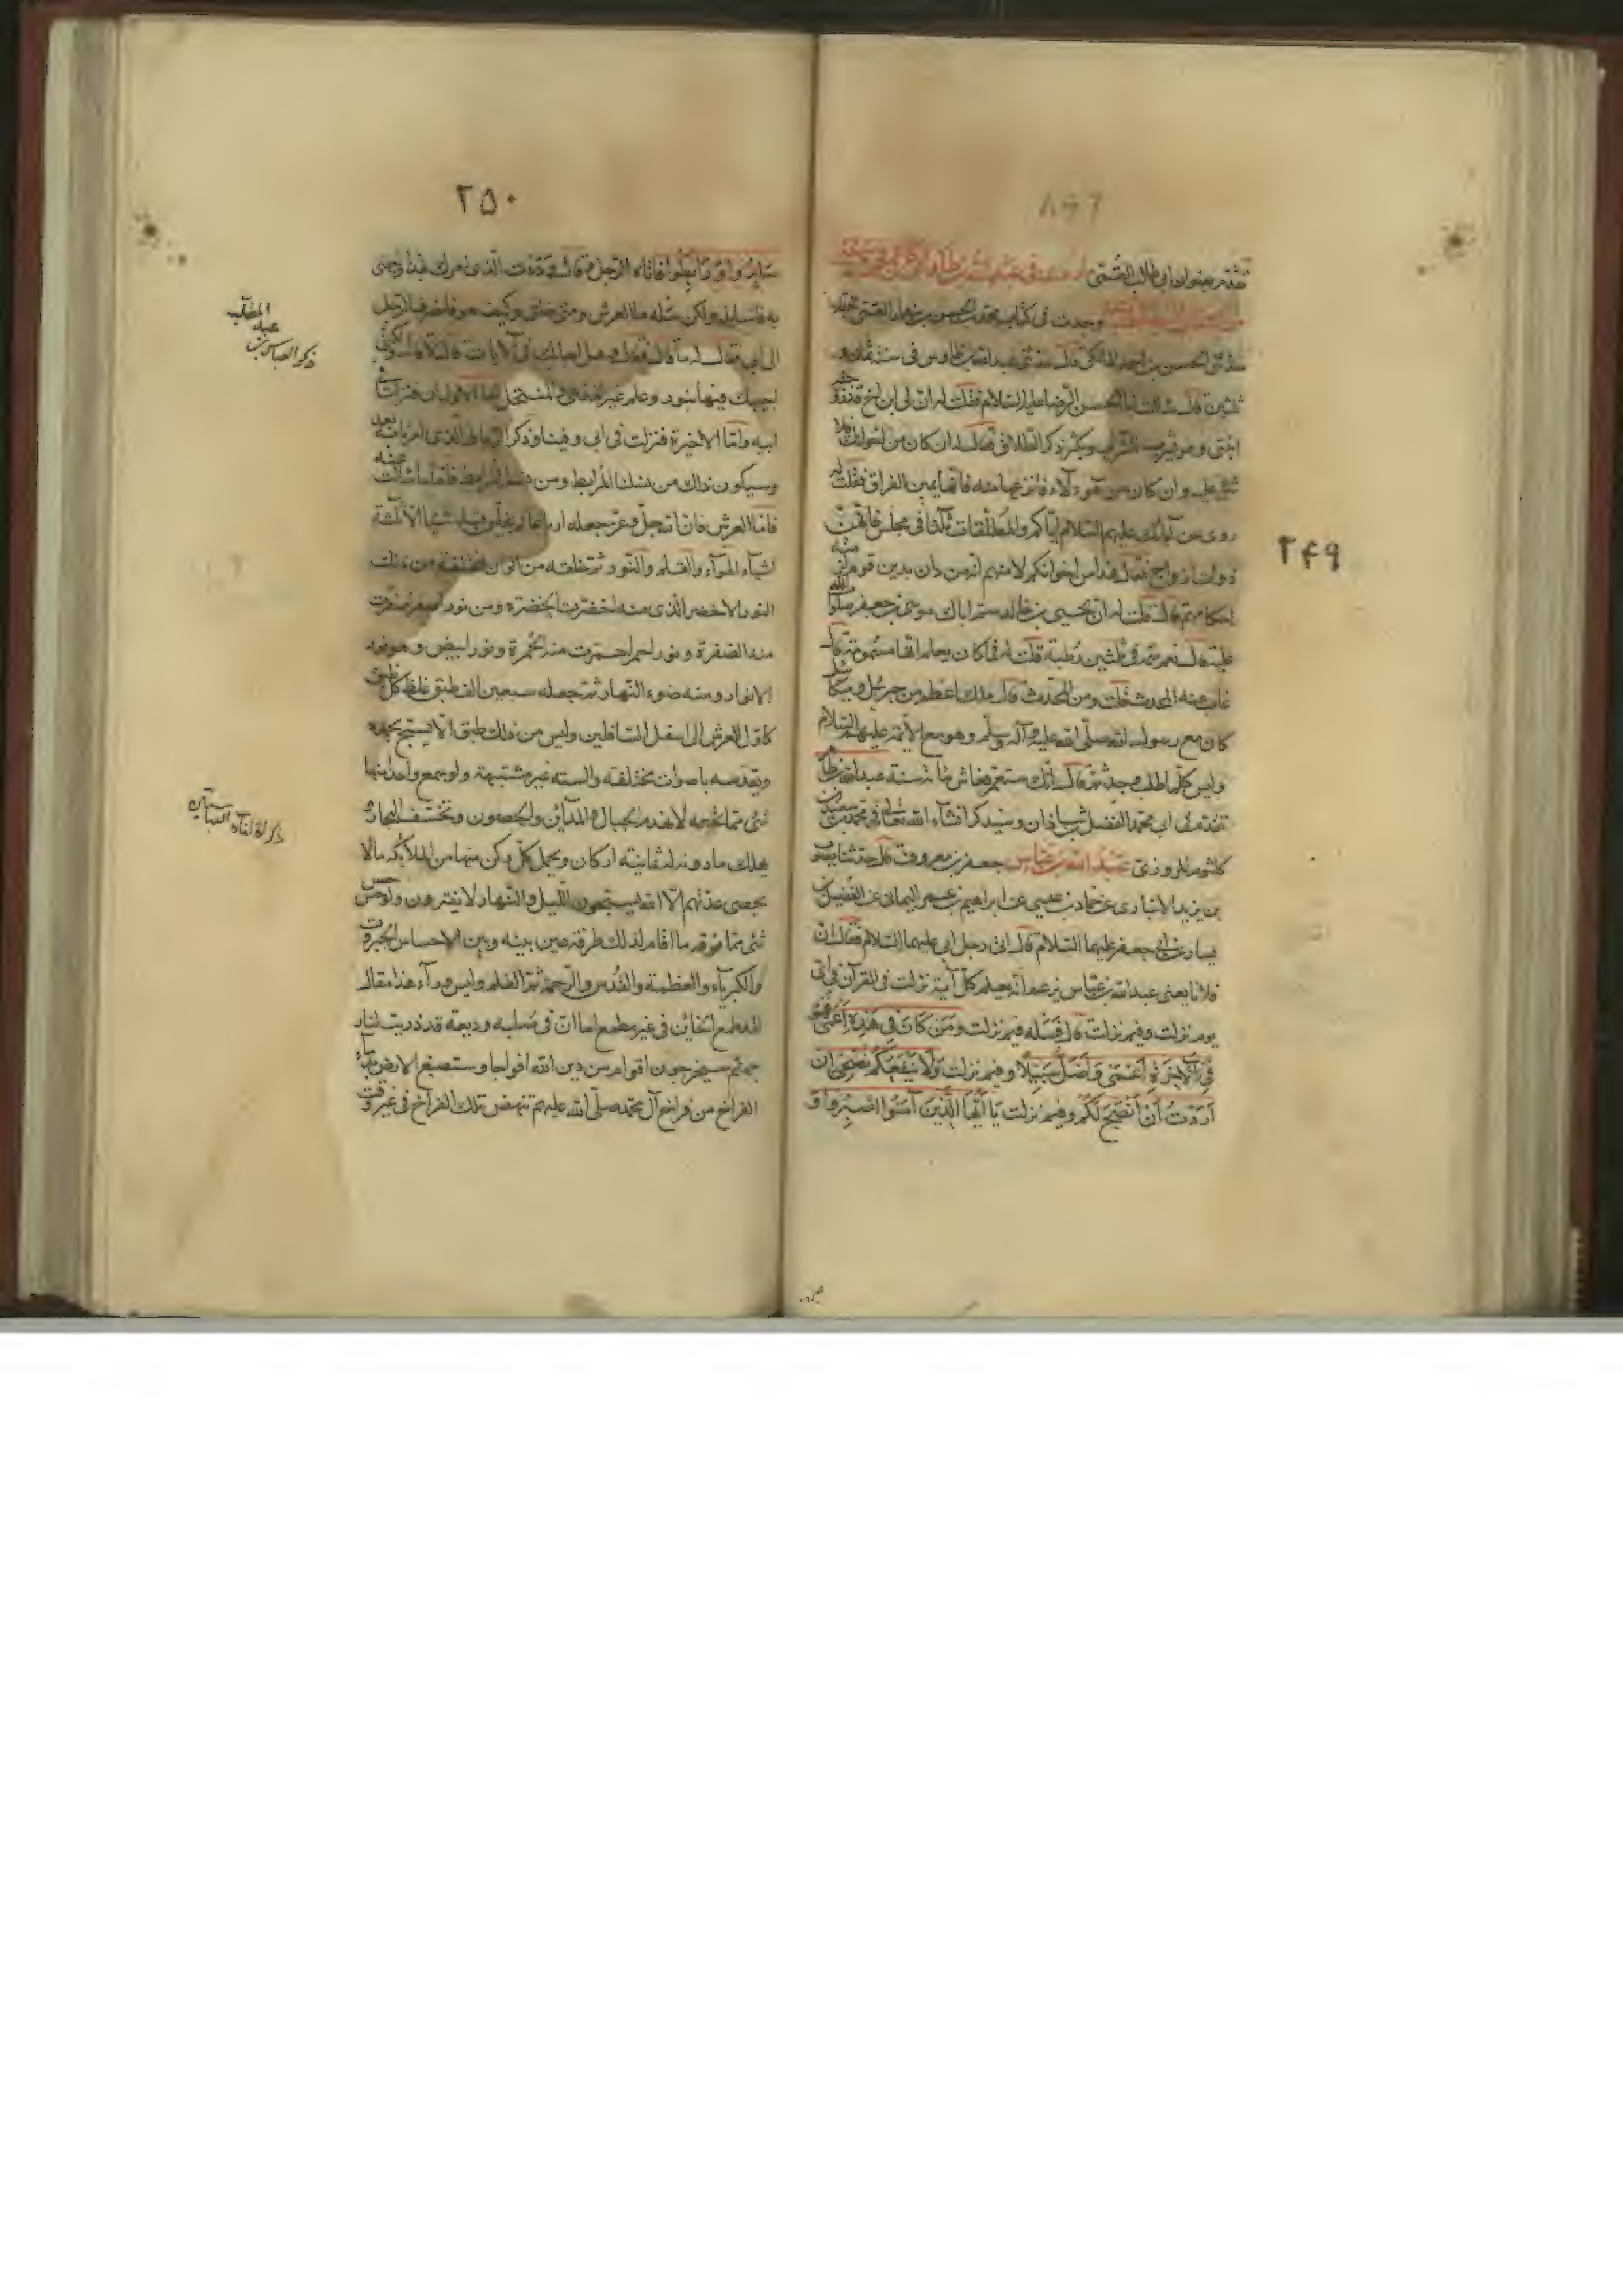 تقدم بعنوان ابى طالب القمى
وجدت فى كتاب محمد بن الحسن بن بندار القمى بخطه
حدثنى الحسين بن احمد المالكى قال حدثنى عبد الله بن طاوس فى سنة ثمان و
ثلثين قال سالت ابا الحسن الرضا عليه السلام فقلت له ان لى ابن اخ قد زوجته
ابنتى وهو يشرب الشراب ويكثر ذكر الطلاق فقال له ان كان من اخوانك فلا
شئ عليه وان كان من هؤلاء فانزعها منه فانما يمين الفراق فقلت له
روى عن آبائك عليهم السلام اياكم والمطلقات ثلثا فى مجلس فانهن
ذوات ازواج فقال هذا من اخوانكم لا منهم انه من دان بدين قوم لزمته
احكامهم قال قلت له ان يحيى بن خالد سم اباك موسى بن جعفر صلوات الله
عليه قال نعم سمه فى ثلثين رطبة قلت له فما كان يعلم انها مسمومة قال
غاب عنه المحدث قلت ومن المحدث قال ملك اعظم من جبرئيل وميكائيل
كان مع رسول الله صلى الله عليه وآله وسلم وهو مع الائمة عليهم السلام
وليس كلما طلب وجد ثم قال انك ستعمر فعاش مائة سنة
تقدم فى ابى محمد الفضل بن شاذان وسيذكر انشاء الله تعالى فى محمد بن سعيد بن
كلثوم المروزى عبد الله بن عباس جعفر بن معروف قال حدثنا يعقوب
بن يزيد الانبارى عن حماد بن عيسى عن ابراهيم بن عمر اليمانى عن الفضيل بن
يسار عن ابى جعفر عليهما السلام قال اتى رجل ابى عليهما السلام فقال ان
فلانا يعنى عبد الله بن عباس يزعم انه يعلم كل آية نزلت فى القرآن فى اى
يوم نزلت وفيم نزلت قال فسله فيم نزلت ومن كان فى هذه اعمى فهو
فى الآخرة اعمى واضل سبيلا وفيم نزلت ولا ينفعكم نصحى ان
اردت ان انصح لكم وفيم نزلت يا ايها الذين آمنوا اصبروا و
۲۴۹
۲۵۰
صابروا ورابطوا فاتاه الرجل فقال وددت الذى امرك بهذا واجهنى
به فاسايله ولكن سله ما العرش ومتى خلق وكيف هو فانصرف الرجل
الى ابى فقال له ما قال فقال وهل اجابك فى الآيات قال لا قال ولكنى
اجيبك فيها بنور وعلم غير المدعى والمنتحل اما الاوليان فنزلتا فى
ابيه واما الاخيرة فنزلت فى ابى وفينا وذكر الرباط الذى امرنا به بعد
وسيكون ذلك من نسلنا المرابط ومن نسله المرابط فاما ما سالت عنه
فاما العرش فان الله جل وعز جعله ارباعا لم يخلق قبله شيئا الا ثلثة
اشياء الهواء والقلم والنور ثم خلقه من الوان مختلفة من ذلك
النور الاخضر الذى منه اخضرت الخضرة ومن نور اصفر اصفرت
منه الصفرة ونور احمر احمرت منه الحمرة ونور ابيض وهو نور
الانوار ومنه ضوء النهار ثم جعله سبعين الف طبق غلظ كل طبق
كاول العرش الى اسفل السافلين وليس من ذلك طبق الا يسبح بحمده
ويقدسه باصوات مختلفة والسنة غير مشتبهة ولو سمع واحدا منها
شئ مما تحته لانهدم الجبال والمدائن والحصون ولخسف البحار و
يهلك ما دونه له ثمانية اركان ويحمل كل ركن منها من الملائكة ما لا
يحصى عددهم الا الله يسبحون الليل والنهار لا يفترون ولو حس
شئ مما فوقه ما اقام لذلك طرفة عين بينه وبين الاحساس الجبروت
والكبرياء والعظمة والقدس والرحمة ثم القلم وليس وراء هذا مقال
لقد طمع الخائن فى غير مطمع اما ان فى صلبه وديعة قد ذريت لنار
جهنم سيخرجون اقوام من دين الله افواجا وستصبغ الارض بدماء
الفراخ من فراخ آل محمد صلى الله عليهم تنهض تلك الفراخ فى غير وقت
ذكر العباس بن
عبد
المطلب